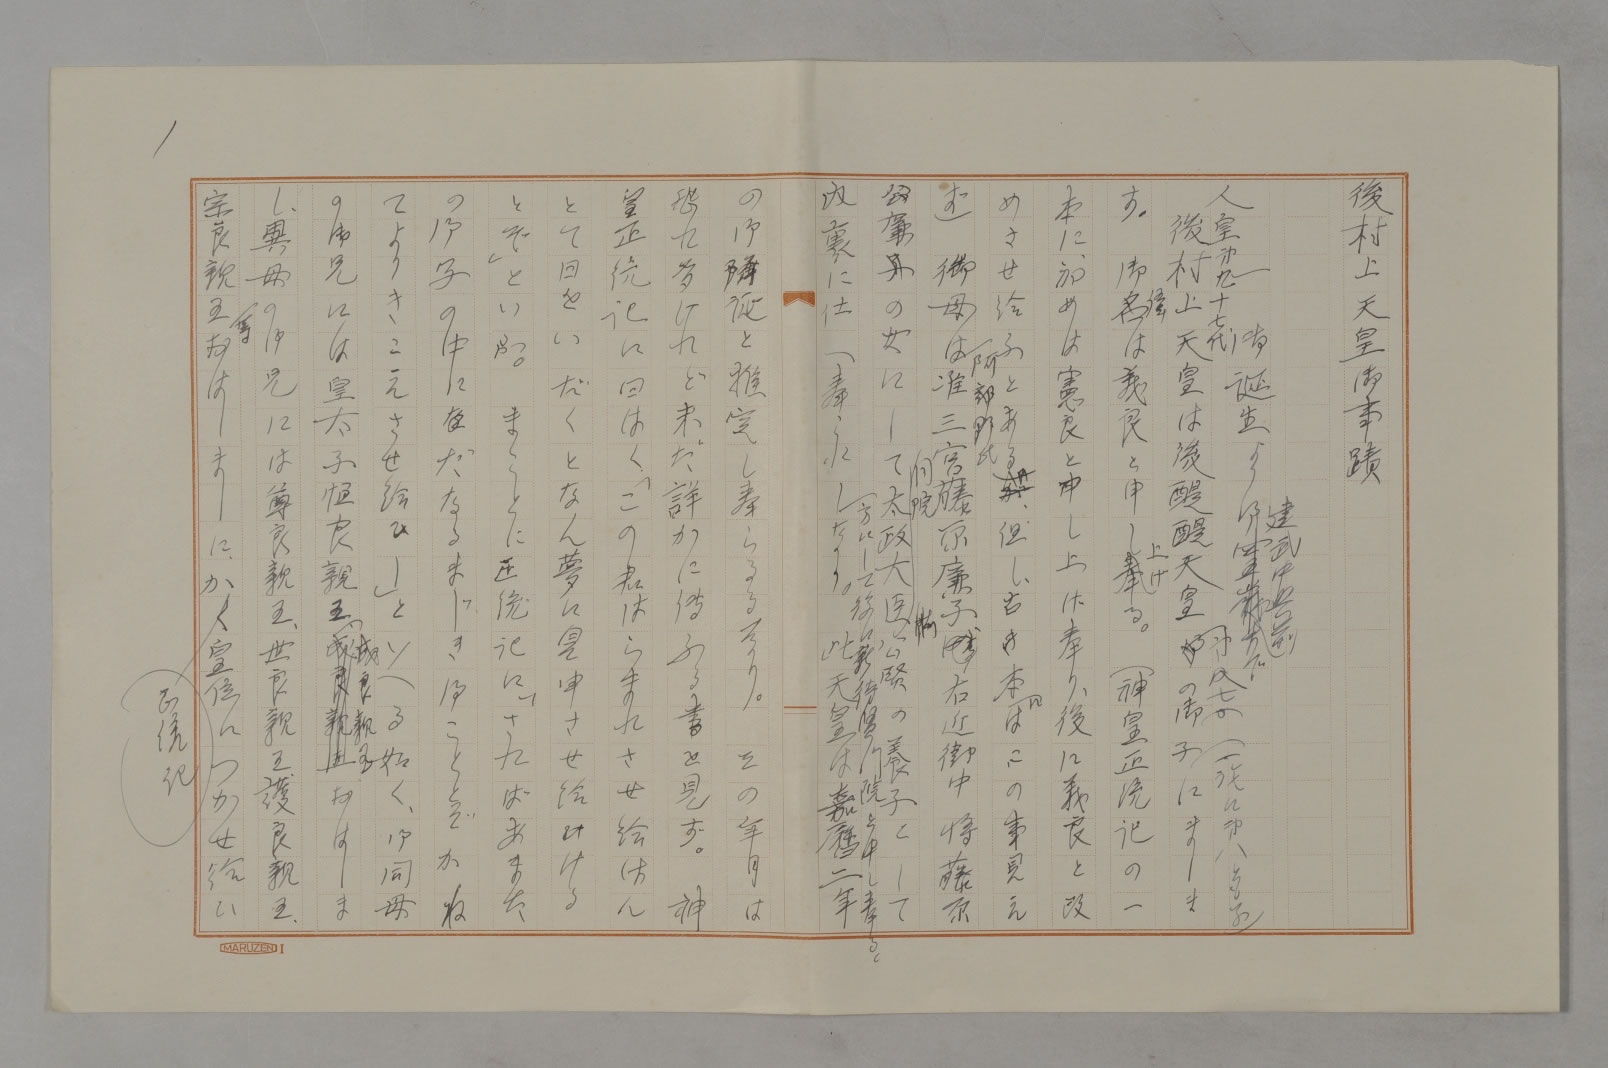 後村上天皇御事蹟
建武中興前
御誕生より
人皇第九十七代
後村上天皇は後醍醐天皇の御子にましま
す。御名は義良と申し上げ奉る。(神皇正統記の一
本に、初めは憲良と申し上げ奉り、後に義良と改
めさせ給ふとある、但し古き本にはこの事見え
ず 御母は准三宮藤原廉子、右近衛中将藤原
阿野氏
公廉の女にして太政大臣公賢の養子として
洞院
内裏に仕へ奉られしなり。此天皇は嘉暦二年
(方にして後に新待賢門院と申し奉る。
の御降誕と推定し奉らるるなり。その年月は
恐れ多けれど未だ詳かに傳ふる書を見ず。神
皇正統記に曰はく、「この君はらまれさせ給はん
とて日をいだくとなん夢に見申させ給ひける
とぞ」といふ。まことに正統記に「さればあまた
の御子の中にただなるまじき御ことぞかね
てよりきこえさせ給ひし」といへる如く、御同母
の御兄には皇太子恒良親王、成良親王おはしま
し、異母の御兄には尊良親王、世良親王、護良親王、
宗良親王等おはしまししに、かく皇位につかせ給ひ
正統記
MARUZEN I